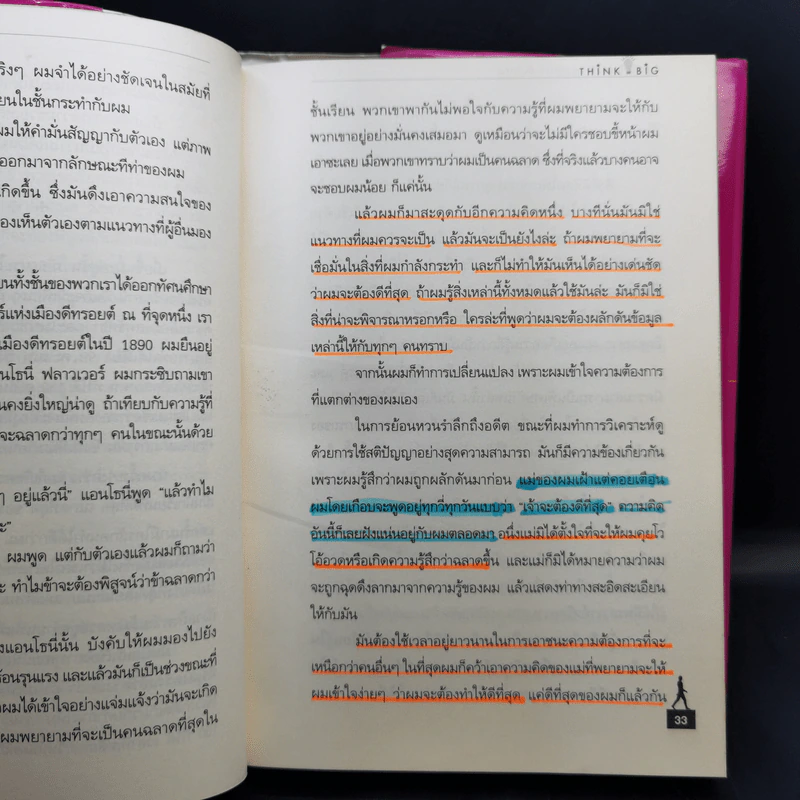 ริงๆ ผมจำได้อย่างชัดเจนในสมัยที่
ยนในชั้นกระทำกับผม
ผมให้คำมั่นสัญญากับตัวเอง แต่ภาพ
ออกมาจากลักษณะทีท่าของผม
กิดขึ้น ซึ่งมันดึงเอาความสนใจของ
องเห็นตัวเองตามแนวทางที่ผู้อื่นมอง
ยนทั้งชั้นของพวกเราได้ออกทัศนศึกษา
ร์แห่งเมืองดีทรอยต์ ณ ที่จุดหนึ่ง เรา
เมืองดีทรอยต์ในปี 1890 ผมยืนอยู่
นโธนี่ ฟลาวเวอร์ ผมกระซิบถามเขา
นคงยิ่งใหญ่น่าดู ถ้าเทียบกับความรู้ที่
จะฉลาดกว่าทุกๆ คนในขณะนั้นด้วย
ๆ อยู่แล้วนี่" แอนโธนี่พูด "แล้วทำไม
ะ"
ผมพูด แต่กับตัวเองแล้วผมก็ถามว่า
ะ ทำไมข้าจะต้องพิสูจน์ว่าข้าฉลาดกว่า
งแอนโธนี่นั้น บังคับให้ผมมองไปยัง
ร้อนรุนแรง และแล้วมันก็เป็นช่วงขณะที่
าผมได้เข้าใจอย่างแจ่มแจ้งว่ามันจะเกิด
ผมพยายามที่จะเป็นคนฉลาดที่สุดใน
THINK BIG
ชั้นเรียน พวกเขาพากันไม่พอใจกับความรู้ที่ผมพยายามจะให้กับ
พวกเขาอยู่อย่างมั่นคงเสมอมา ดูเหมือนว่าจะไม่มีใครชอบขี้หน้าผม
เอาซะเลย เมื่อพวกเขาทราบว่าผมเป็นคนฉลาด ซึ่งที่จริงแล้วบางคนอาจ
จะชอบผมน้อย ก็แค่นั้น
แล้วผมก็มาสะดุดกับอีกความคิดหนึ่ง บางทีนั่นมันมิใช่
แนวทางที่ผมควรจะเป็น แล้วมันจะเป็นยังไงล่ะ ถ้าผมพยายามที่จะ
เชื่อมั่นในสิ่งที่ผมกำลังกระทำ และก็ไม่ทำให้มันเห็นได้อย่างเด่นชัด
ว่าผมจะต้องดีที่สุด ถ้าผมรู้สิ่งเหล่านี้ทั้งหมดแล้วใช้มันล่ะ มันก็มิใช่
สิ่งที่น่าจะพิจารณาหรอกหรือ ใครล่ะที่พูดว่าผมจะต้องผลักดันข้อมูล
เหล่านี้ให้กับทุกๆ คนทราบ
จากนั้นผมก็ทำการเปลี่ยนแปลง เพราะผมเข้าใจความต้องการ
ที่แตกต่างของผมเอง
ในการย้อนหวนรำลึกถึงอดีต ขณะที่ผมทำการวิเคราะห์ดู
ด้วยการใช้สติปัญญาอย่างสุดความสามารถ มันก็มีความข้องเกี่ยวกัน
เพราะผมรู้สึกว่าผมถูกผลักดันมาก่อน แม่ของผมเฝ้าแต่คอยเตือน
ผมโดยเกือบจะพูดอยู่ทุกวี่ทุกวันแบบว่า "เจ้าจะต้องดีที่สุด" ความคิด
อันนี้ก็เลยฝังแน่นอยู่กับผมตลอดมา อนึ่งแม่มิได้ตั้งใจที่จะให้ผมคุยโว
โอ้อวดหรือเกิดความรู้สึกว่าฉลาดขึ้น และแม่ก็มิได้หมายความว่าผม
จะถูกฉุดดึงลากมาจากความรู้ของผม แล้วแสดงท่าทางสะอิดสะเอียน
ให้กับมัน
มันต้องใช้เวลาอยู่ยาวนานในการเอาชนะความต้องการที่จะ
เหนือกว่าคนอื่นๆ ในที่สุดผมก็คว้าเอาความคิดของแม่ที่พยายามจะให้
ผมเข้าใจง่ายๆ ว่าผมจะต้องทำให้ดีที่สุด แค่ดีที่สุดของผมก็แล้วกัน
33